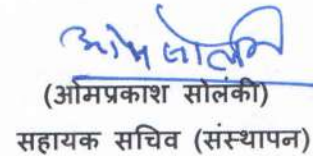 ओम सोलंकी
(ओमप्रकाश सोलंकी)
सहायक सचिव (संस्थापन)